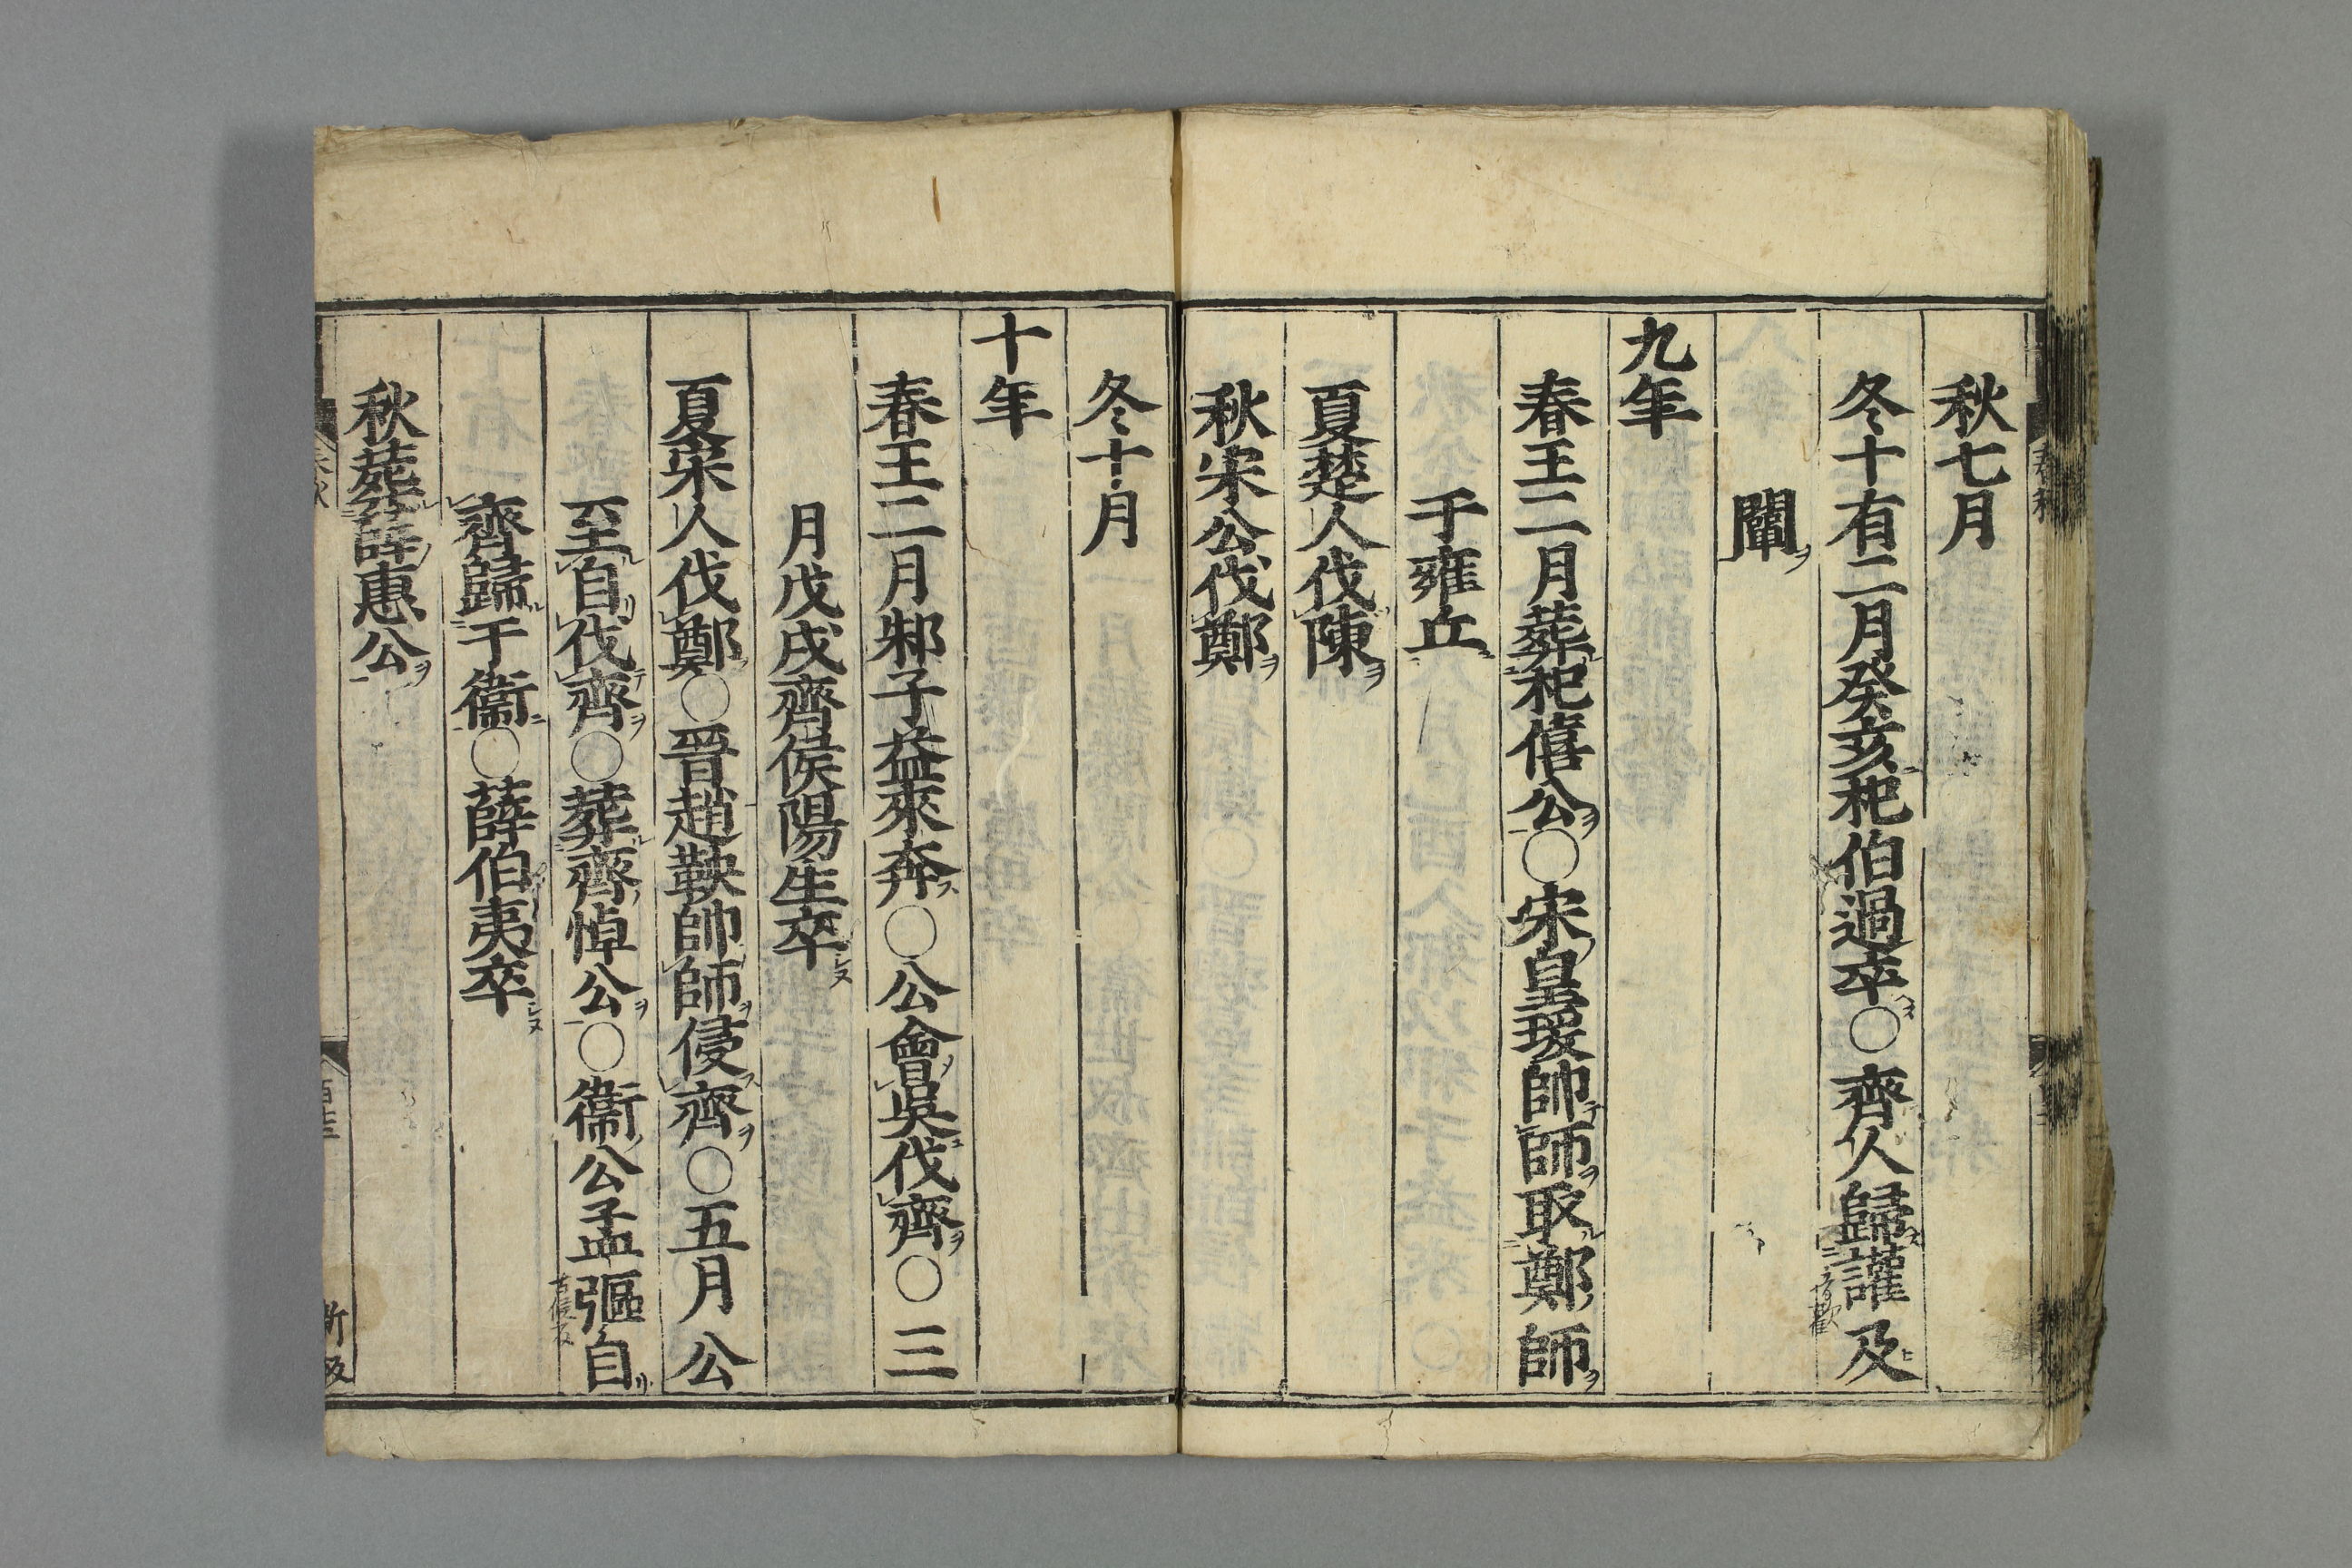 秋七月
冬十有二月癸亥杞伯過卒○齊人歸讙及
闡
九年
春王二月葬杞僖公○宋皇瑗帥師取鄭師
于雍丘
夏楚人伐陳
秋宋公伐鄭
冬十月
十年
春王二月邾子益來奔○公會吳伐齊○三
月戊戌齊侯陽生卒
夏宋人伐鄭○晉趙鞅帥師侵齊○五月公
至自伐齊○葬齊悼公○衞公孟彄自
齊歸于衞○薛伯夷卒
秋葬薛惠公